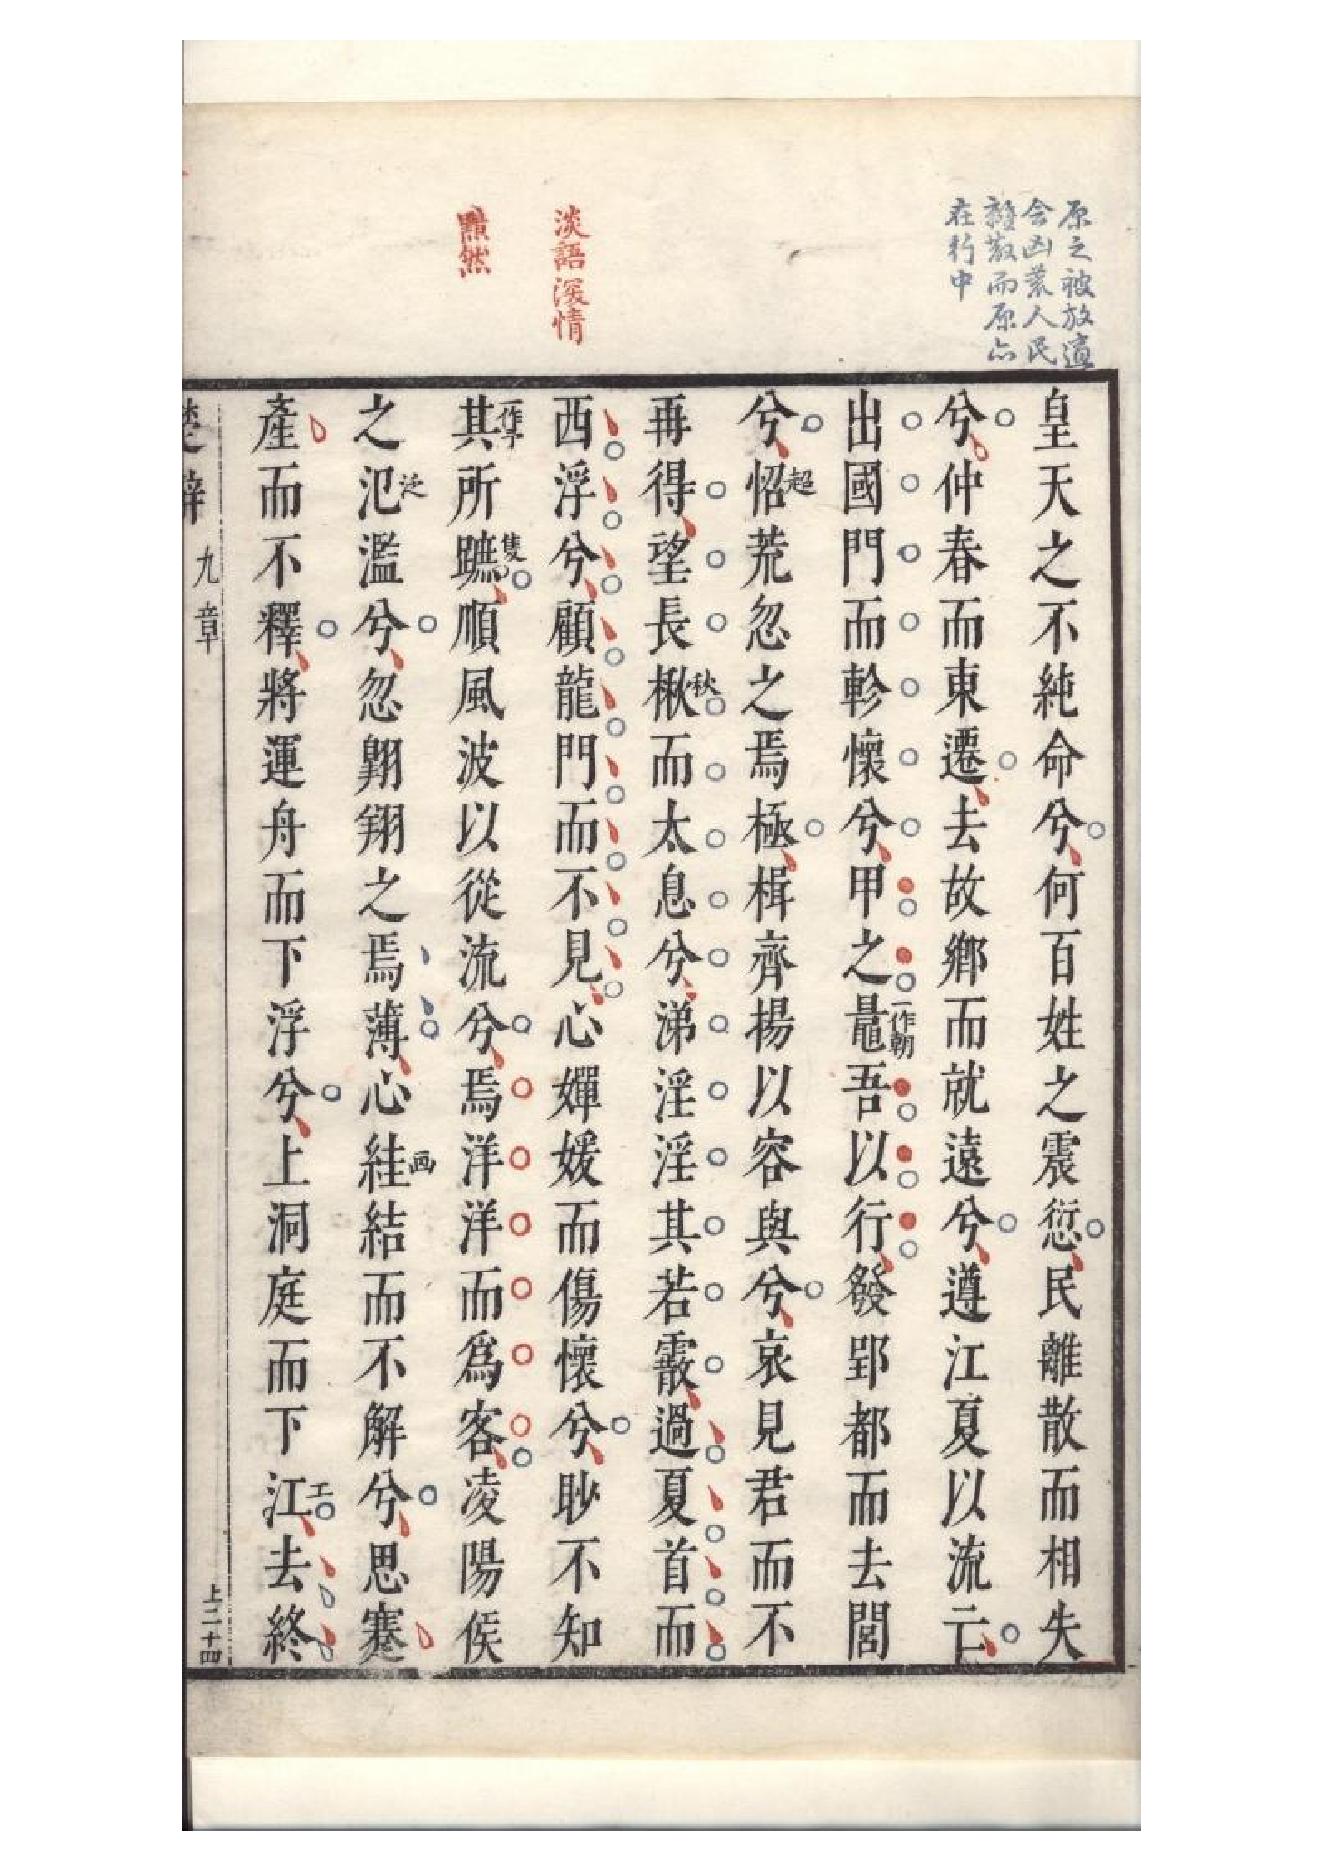 原之被放適
會凶荒人民
離散而原亦
在行中
淡語深情
黯然
皇天之不純命兮何百姓之震愆民離散而相失
兮仲春而東遷去故鄉而就遠兮遵江夏以流亡
出國門而軫懷兮甲之鼂一作朝吾以行發郢都而去閭
兮怊超荒忽之焉極楫齊揚以容與兮哀見君而不
再得望長楸秋而太息兮涕淫淫其若霰過夏首而
西浮兮顧龍門而不見心嬋媛而傷懷兮眇不知
其一作予所蹠隻順風波以從流兮焉洋洋而爲客凌陽侯
之氾泛濫兮忽翺翔之焉薄心絓畫結而不解兮思蹇
產而不釋將運舟而下浮兮上洞庭而下江工去終
楚辭 九章 上二十四